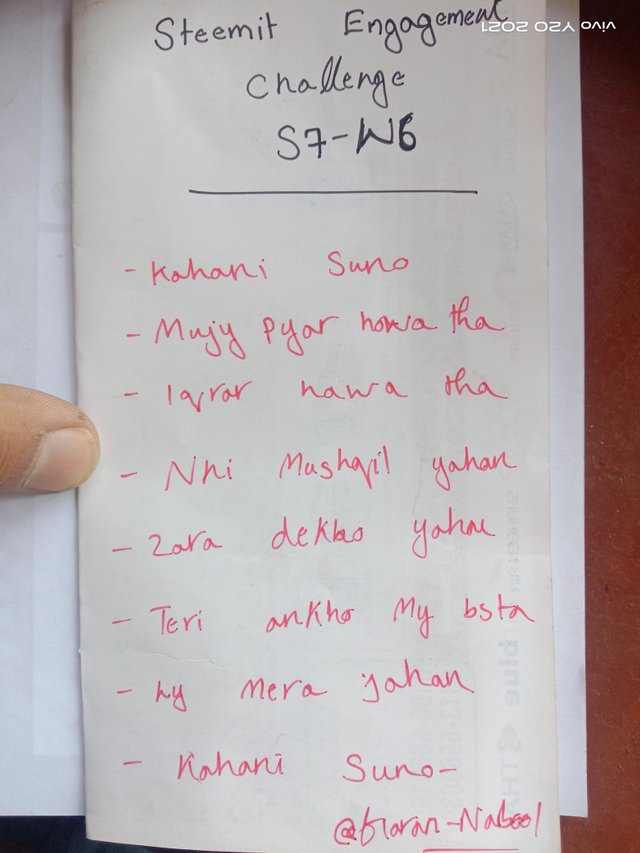 Steemit Engagement
Challenge
S7-W6
- Kahani Suno
- Mujy Pyar howa tha
- Iqrar hawa tha
- Nhi Mushqil yahan
- Zara dekho yahan
- Teri ankho My bsta
- hy Mera jahan
- Kahani Suno-
vivo Y20 2021